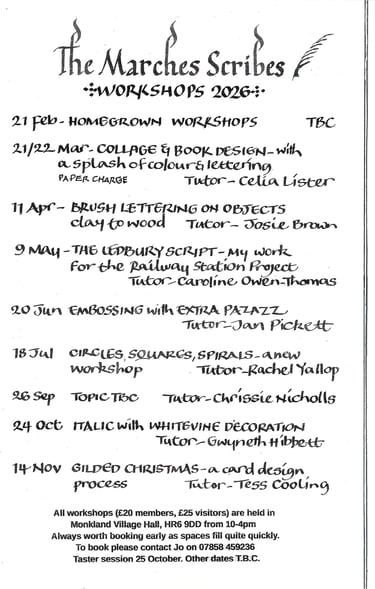 The Marches Scribes
WORKSHOPS 2026
21 Feb - HOMEGROWN WORKSHOPS TBC
21/22 Mar - COLLAGE & BOOK DESIGN - with
a splash of colour & lettering
PAPER CHARGE Tutor - Celia Lister
11 Apr - BRUSH LETTERING ON OBJECTS
clay to wood Tutor - Josie Brown
9 May - THE LEDBURY SCRIPT - My work
for the Railway Station Project
Tutor - Caroline Owen-Thomas
20 Jun EMBOSSING with EXTRA PAZAZZ
Tutor - Jan Pickett
18 Jul CIRCLES, SQUARES, SPIRALS - a new
workshop Tutor - Rachel Yallop
26 Sep TOPIC TBC Tutor - Chrissie Nicholls
24 Oct ITALIC with WHITEVINE DECORATION
Tutor - Gwyneth Hibbett
14 Nov GILDED CHRISTMAS - a card design
process Tutor - Tess Cooling
All workshops (£20 members, £25 visitors) are held in
Monkland Village Hall, HR6 9DD from 10-4pm
Always worth booking early as spaces fill quite quickly.
To book please contact Jo on 07858 459236
Taster session 25 October. Other dates T.B.C.